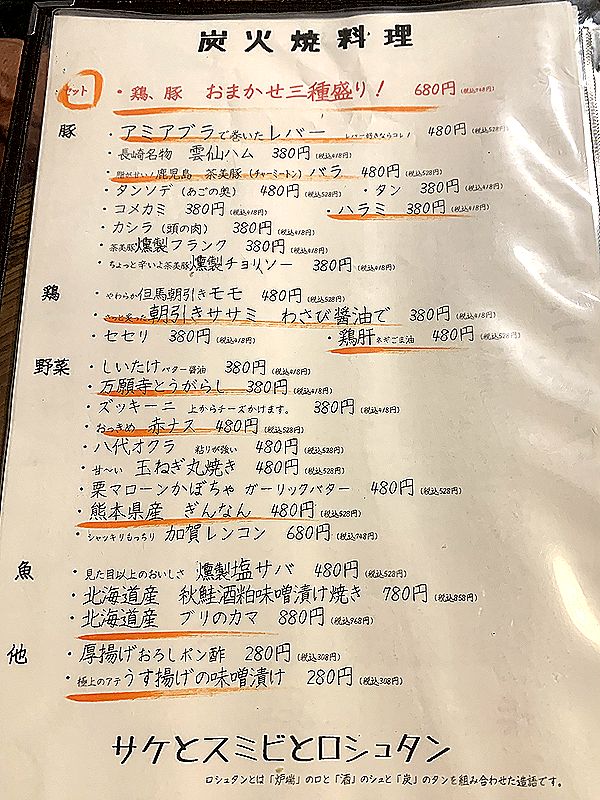 炭火焼料理
セット ・鶏、豚 おまかせ三種盛り! 680円(税込748円)
豚 ・アミアブラで巻いたレバー レバー好きならコレ! 480円(税込528円)
・長崎名物 雲仙ハム 380円(税込418円)
・脂が甘い!鹿児島 茶美豚(チャーミートン)バラ 480円(税込528円)
・タンソデ(あごの奥) 480円(税込528円) ・タン 380円(税込418円)
・コメカミ 380円(税込418円) ・ハラミ 380円(税込418円)
・カシラ(頭の肉) 380円(税込418円)
・茶美豚燻製フランク 380円(税込418円)
・ちょっと辛いよ茶美豚燻製チョリソー 380円(税込418円)
鶏 ・やわらか但馬朝引きモモ 480円(税込528円)
・さっと炙った朝引きササミ わさび醤油で 380円(税込418円)
・セセリ 380円(税込418円) ・鶏肝ネギごま油 480円(税込528円)
野菜 ・しいたけバター醤油 380円(税込418円)
・万願寺とうがらし 380円(税込418円)
・ズッキーニ 上からチーズかけます。 380円(税込418円)
・おっきめ 赤ナス 480円(税込528円)
・八代オクラ 粘りが強い 480円(税込528円)
・甘〜い 玉ねぎ丸焼き 480円(税込528円)
・栗マローンかぼちゃ ガーリックバター 480円(税込528円)
・熊本県産 ぎんなん 480円(税込528円)
・シャッキリもっちり 加賀レンコン 680円(税込748円)
魚 ・見た目以上のおいしさ 燻製塩サバ 480円(税込528円)
・北海道産 秋鮭酒粕味噌漬け焼き 780円(税込858円)
・北海道産 ブリのカマ 880円(税込968円)
他 ・厚揚げおろしポン酢 280円(税込308円)
・極上のアテうす揚げの味噌漬け 280円(税込308円)
サケとスミビとロシュタン
ロシュタンとは「炉端」のロと「酒」のシュと「炭」のタンを組み合わせた造語です。